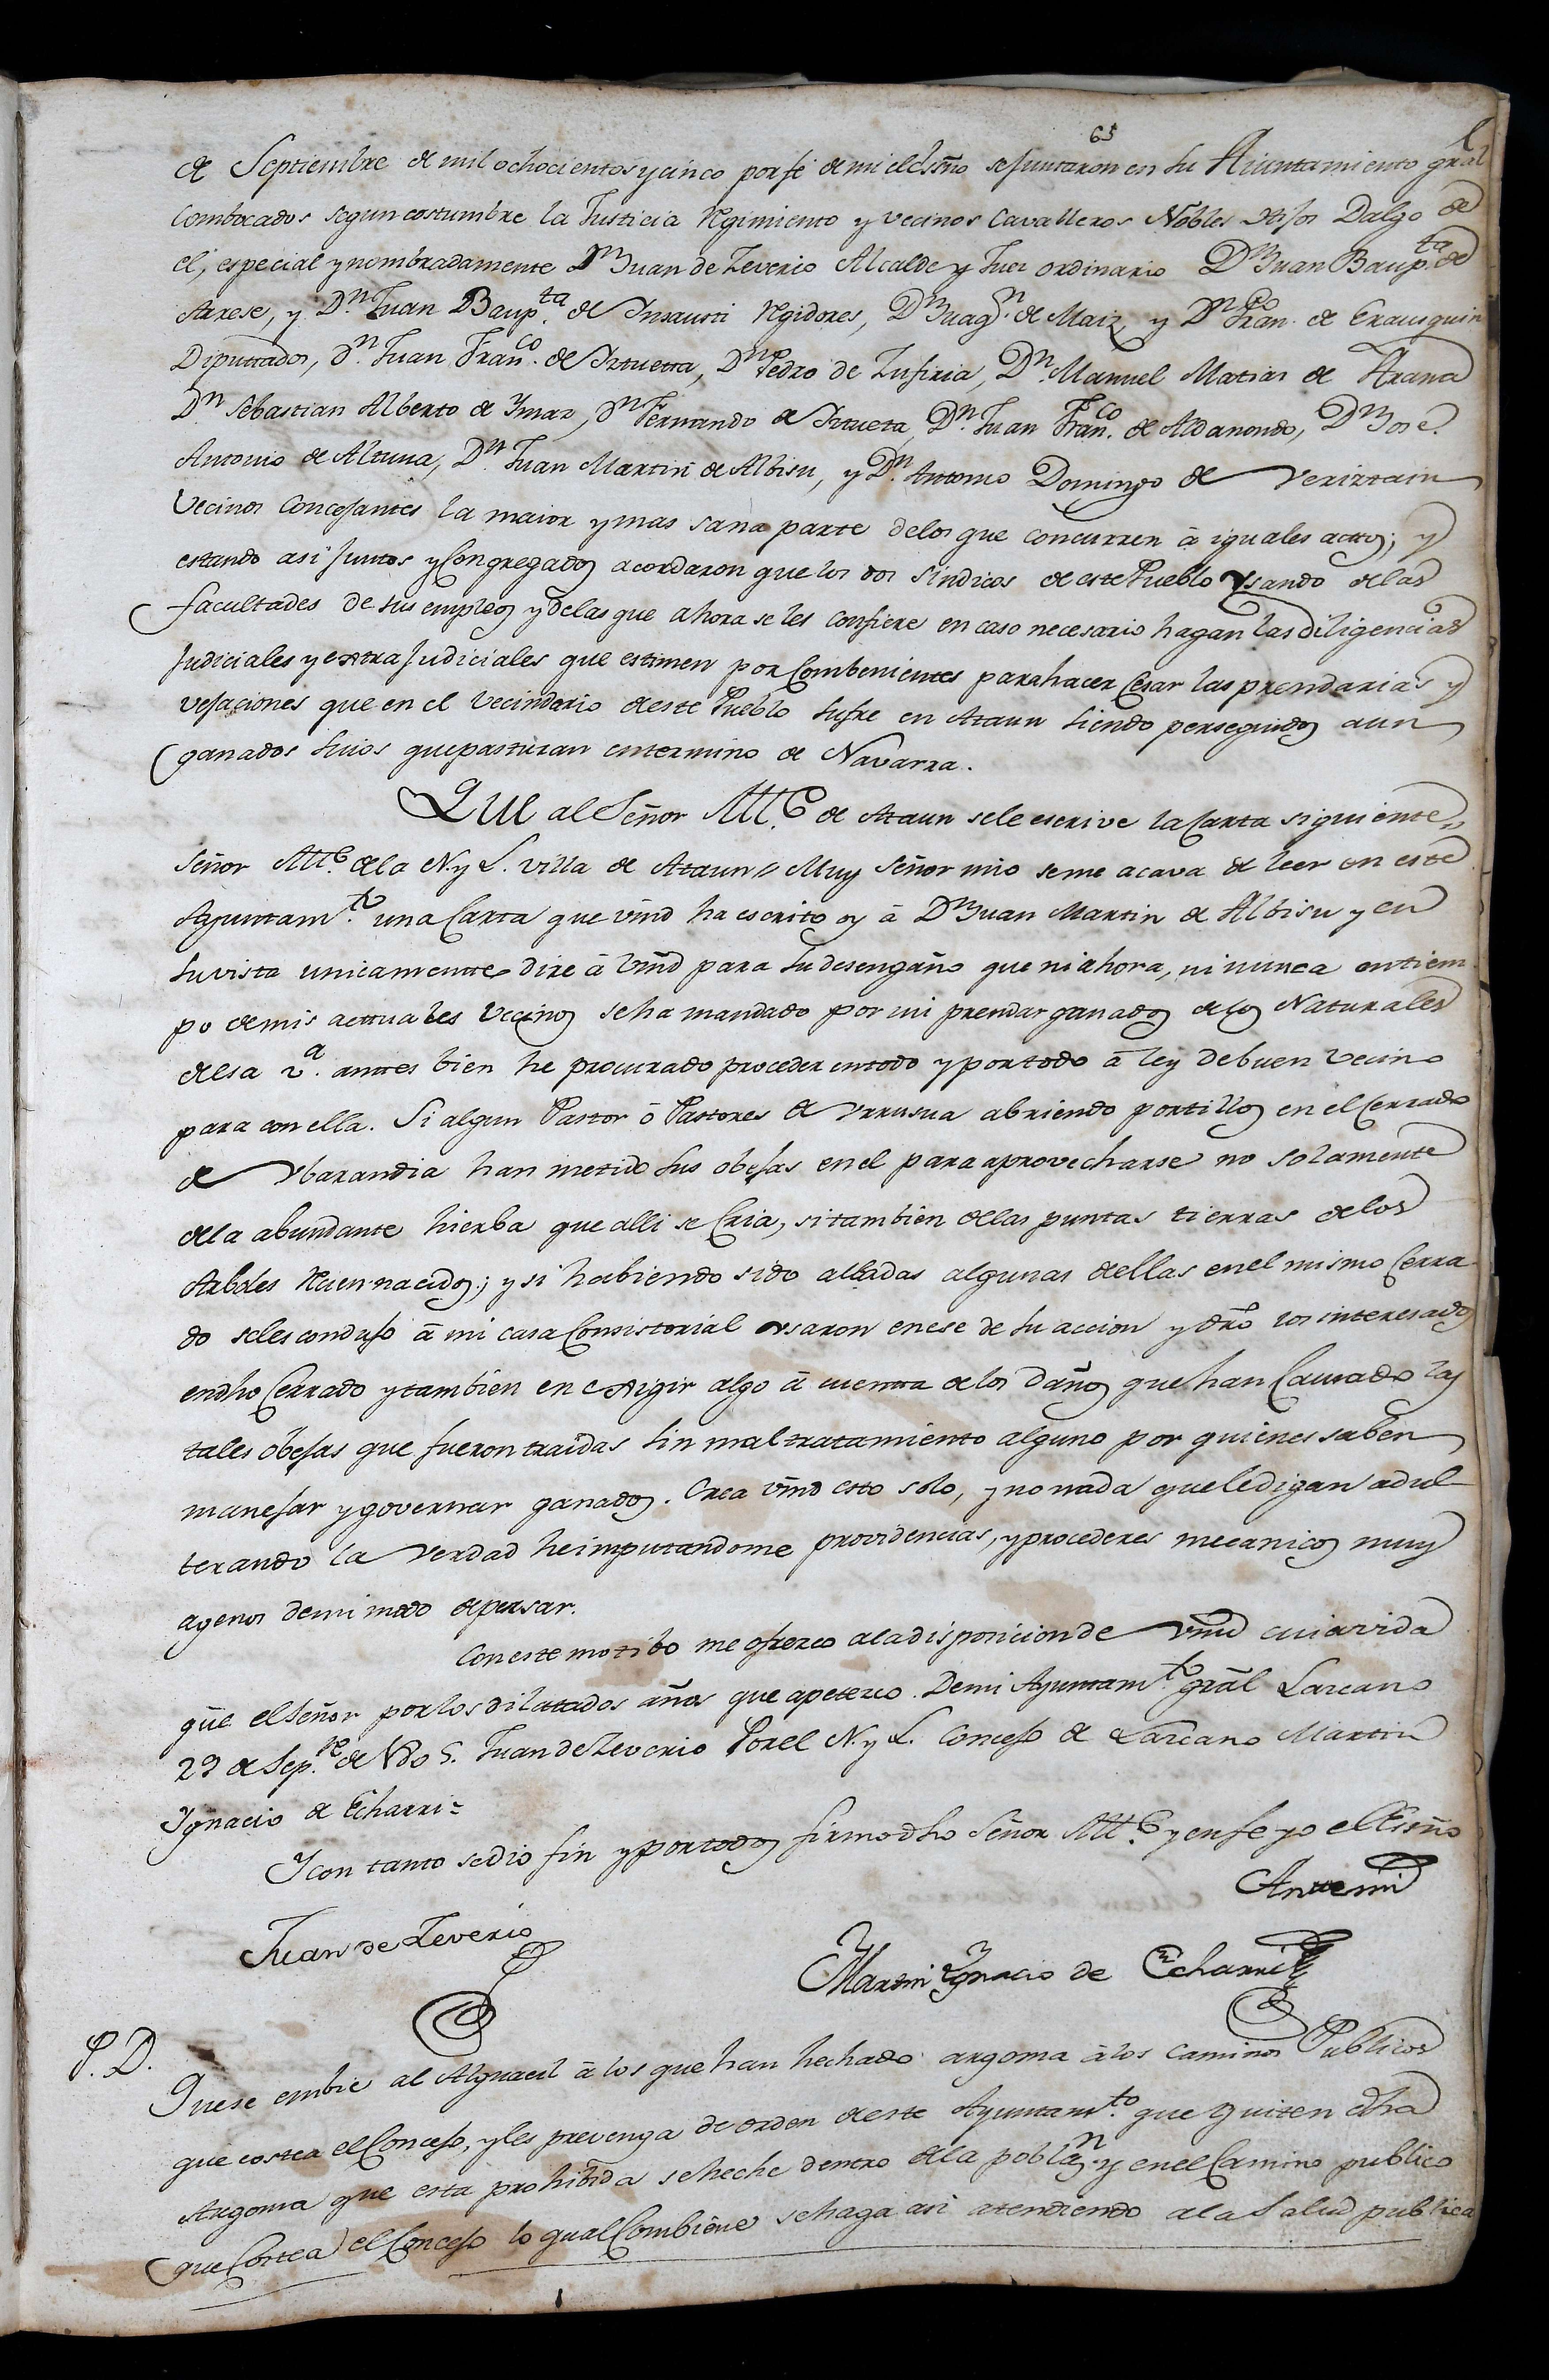 65
de Septiembre de mil ochocientos y cinco por fé de mi el Esno se juntaron en su Aiuntamiento gral
Combocados segun costumbre la Justicia Rgimiento y vecinos Cavalleros Nobles Hijos Dalgo de
él, especial y nombradamente Dn Juan de Zeverio Alcalde y Juez ordinario Dn Juan Baupta de
Arrese, y Dn Juan Baupta de Insausti Rgidores, Dn Juaqn de Maiz y Dn Franco de Erausquin
Diputtados, Dn Juan Franco de Irtuetta, Dn Pedro de Zufiria, Dn Manuel Matias de Arana
Dn Sebastian Alberto de Ymaz, Dn Fernando de Irtueta, Dn Juan Franco de Aldanondo, Dn José
Antonio de Altuna, Dn Juan Martin de Albisu, y Dn Antonio Domingo de Veriztain
Vecinos Concejantes la maior y mas sana parte de los que concurren á iguales acttos; y
estando asi juntos y Congregados acordaron que los dos Sindicos de este Pueblo Vsando de las
facultades de sus empleos y de las que ahora se les confiere en caso necesario hagan las diligencias
Judiciales y extra Judiciales que estimen por Combenientes para hacer Cesar las prendarias y
vejaciones que en el vecindario de este Pueblo sufre en Ataun siendo perseguidos aun
ganados suios que pasturan en termino de Navarra.
QUE al Señor Alle de Ataun se le escrive la Carta siguiente,,
Señor Alle de la N. y L. villa de Ataun // Muy Señor mio se me acava de leer en este
Ayuntamto una Carta que vmd ha escrito oy á Dn Juan Martin de Albisu y en
su vista unicamente dire á Vmd para su desengaño que ni ahora, ni nunca en tiem
po de mis acttuales Vecinos se ha mandado por mi prendar ganados de los Naturales
de esa va. anttes bien he procurado proceder en todo y por todo á ley de buen Vecino
para con ella. Si algun Pastor ó Pastores de Vrrusua abriendo portillos en el Cerrado
de Vbarandia han metido sus obejas en el para aprovecharse no solamente
de la abundante hierba que alli se Cria, si tambien de las puntas tiernas de los
Arboles Rcien nacidos; y si habiendo sido alladas algunas de ellas en el mismo Cerra
do se les condujo á mi casa Consistorial vsaron en ese de su accion y dro los interesados
en dho Cerrado y tambien en exigir algo á cuenta de los Daños que han Causado las
tales obejas que fueron traidas sin mal tratamiento alguno por quienes saben
manejar y governar ganados. Crea vmd esto solo, y no nada que le digan adul
terando la Verdad he imputandome providencias, y procederes mecanicos muy
agenos de mi modo de pensar.
Con este motibo me ofrezco a la disposicion de Vmd cuia vida
gue el Señor por los dilattados años que apetezco. De mi Ayuntamto gral Lazcano
29 de Sepre de 1805. Juan de Zeverio Por el N. y L. Concejo de Lazcano Martin
Ygnacio de Echarri=
Y con tanto se dio fin y por todos firmo dho Señor Alle y en fe yo el Esno
Juan de Zeverio
Antemi
Martin Ygnacio de Echarri
P. D.
Que se embie al Alguacil á los que han hechado argoma á los caminos Publicos
que costea el Concejo, y les prevenga de orden de este Ayuntamto que quiten dha
Argoma que esta prohibida se heche dentro de la poblan y en el Camino publico
que Costea el Concejo lo qual Combiene se haga asi atendiendo a la Salud publica